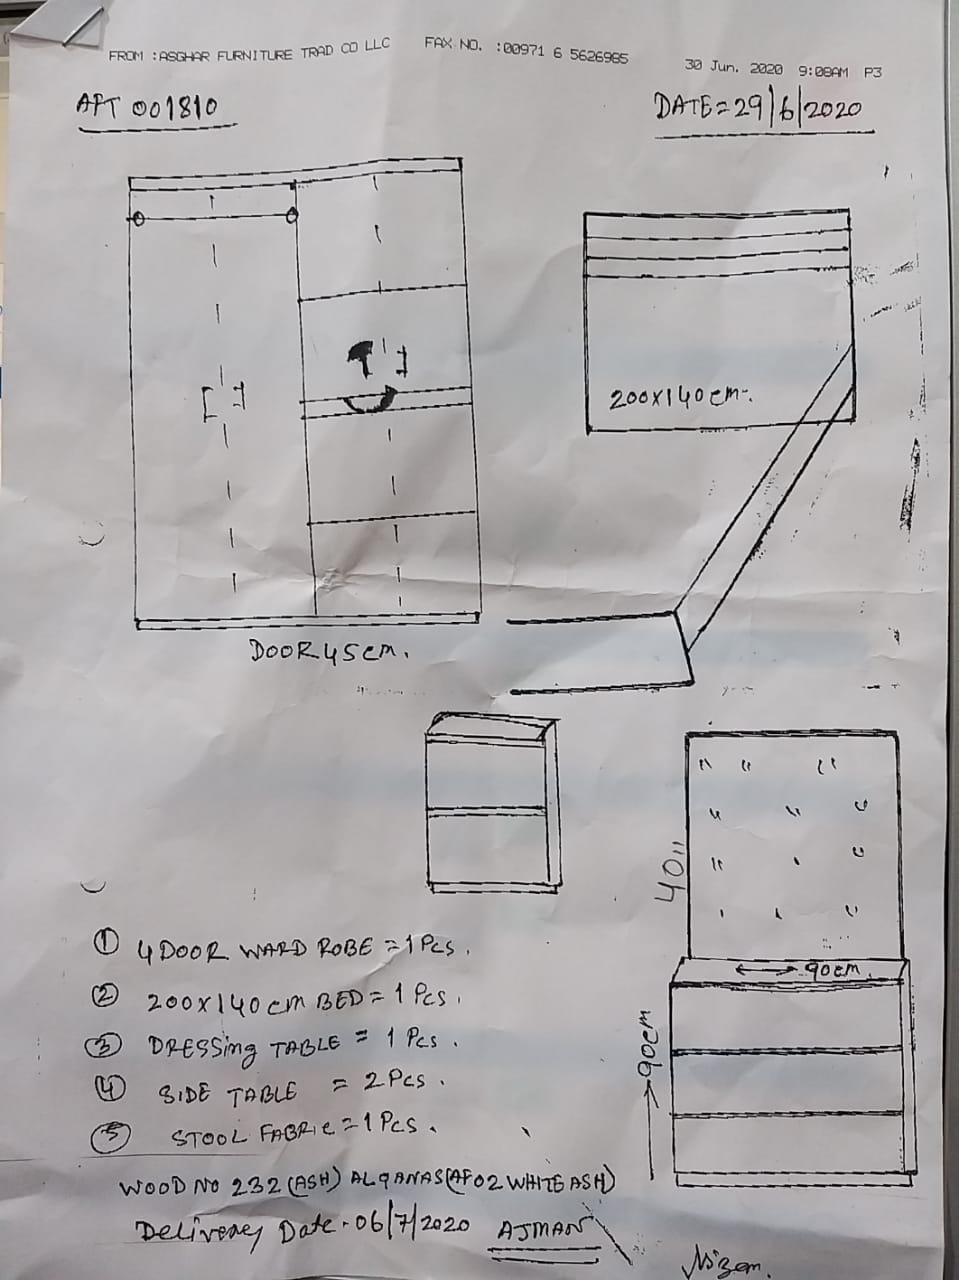 FROM :ASGHAR FURNITURE TRAD CO LLC FAX NO. :00971 6 5626985 30 Jun. 2020 9:08AM P3
APT 001810 DATE=29/6/2020
200x140cm.
DOOR 45cm.
40"
90cm
90cm
① 4 DOOR WARD ROBE = 1 Pcs.
② 200x140cm BED = 1 Pcs.
③ DRESSing TABLE = 1 Pcs.
④ SIDE TABLE = 2 Pcs.
⑤ STOOL FABRic = 1 Pcs.
WOOD NO 232 (ASH) ALQANAS (AF02 WHITE ASH)
Delivery Date. 06/7/2020 AJMAN
Nizem.